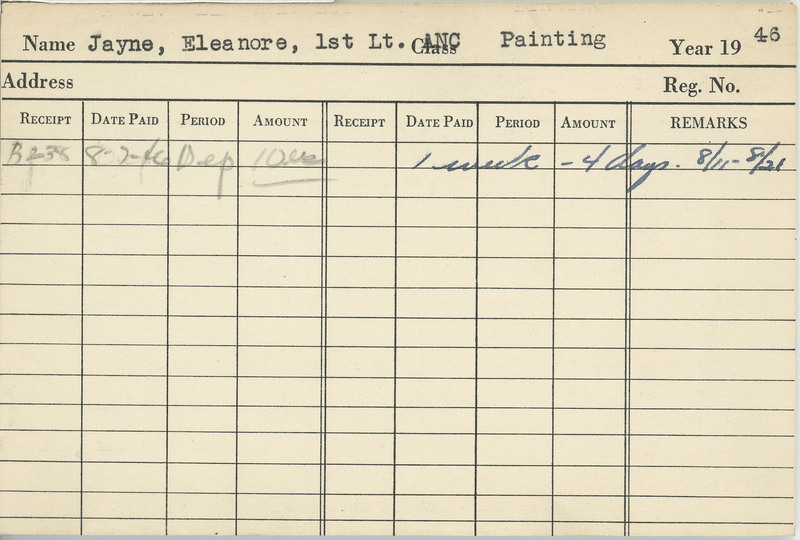 Name Jayne, Eleanore, 1st Lt. ANC Class Painting Year 19 46
Address Reg. No.
RECEIPT DATE PAID PERIOD AMOUNT RECEIPT DATE PAID PERIOD AMOUNT REMARKS
B238 8-2-46 Dep 10.00 1 week - 4 days. 8/11 - 8/21